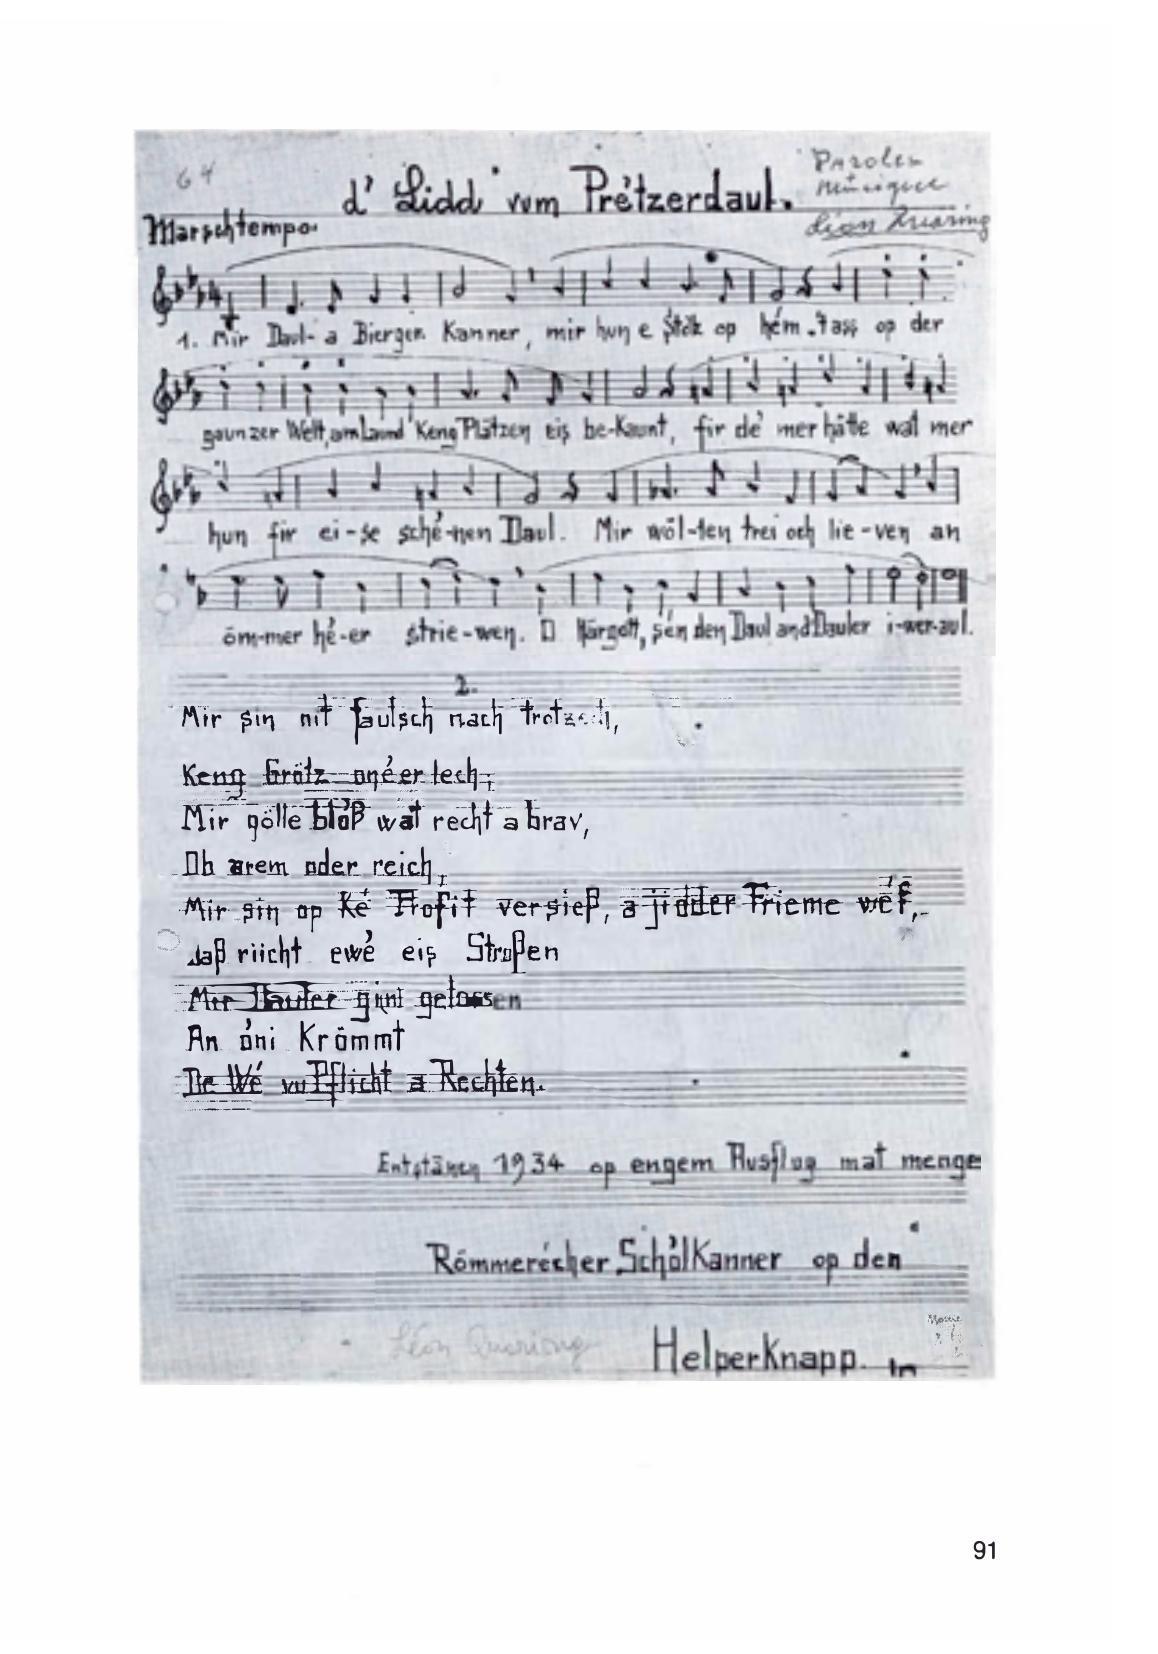 64
d' Lidd vum Prétzerdaul.
Parolen
Musique
Léon Quaring
Marschtempo.
1. Mir Daul- a Bierger Kanner, mir hun e Stek op hém. Tass op der
gaunzer Welt, am Laund Keng Plätzen eis be-Kaunt, fir dé mer hätte wat mer
hun fir ei-se sché-nen Daul. Mir wöl-len trei och lie-ven an
öm-mer hé-er strie-wen. O Härgott, sén den Daul and Dauler i-wer-aul.
2.
Mir sin nit fautsch nach trotzech,
Keng Grätz onéerlech,
Mir gölle blöß wat recht a brav,
Ob arem oder reich,
Mir sin op Ké Profit versieß, a jidder Frieme wéf,
daß riicht ewé eis Stroßen
Mir Dauler gint gelossen
An óni Krömmt
De Wé vu Pflicht a Rechten.
Entstänen 1934 op engem Ausflug mat menge
Römmerécher Schölkanner op den
Helperknapp.
Léon Quaring
91